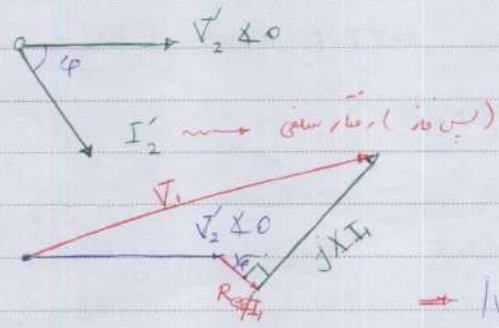 V₂′ ∡0
φ
I₂′ ⟿ (پس فاز) رفتار سلفی
V₁
V₂′ ∡0
φ
jXI₁
R_eq I₁
⇒ |